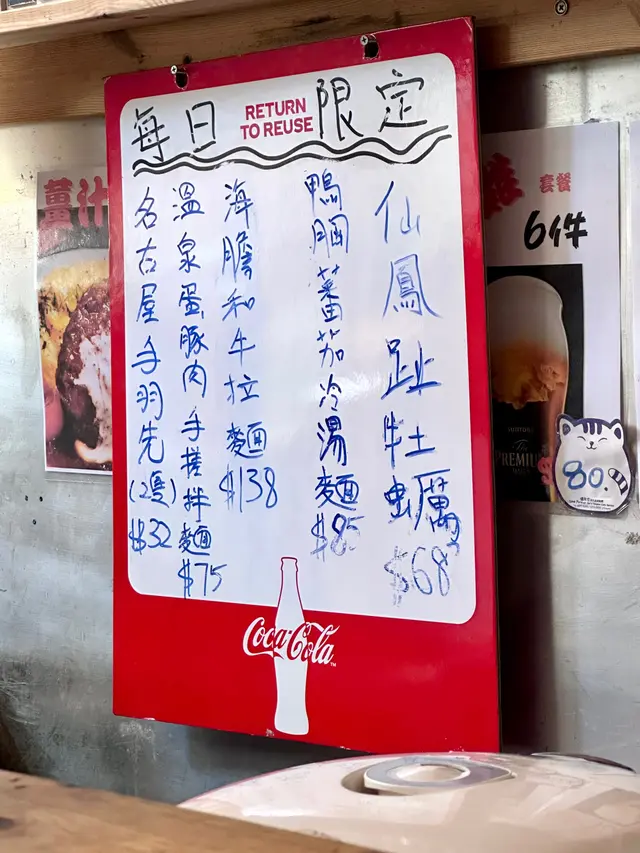 每日 限定
RETURN
TO REUSE
仙鳳趾牡蠣 $68
鴨胸蕃茄冷湯麵 $85
海膽和牛拉麵 $138
溫泉蛋豚肉手搓拌麵 $75
名古屋手羽先(2隻) $32
Coca-Cola
薑汁
套餐
6件
The
PREMIUM
$80.